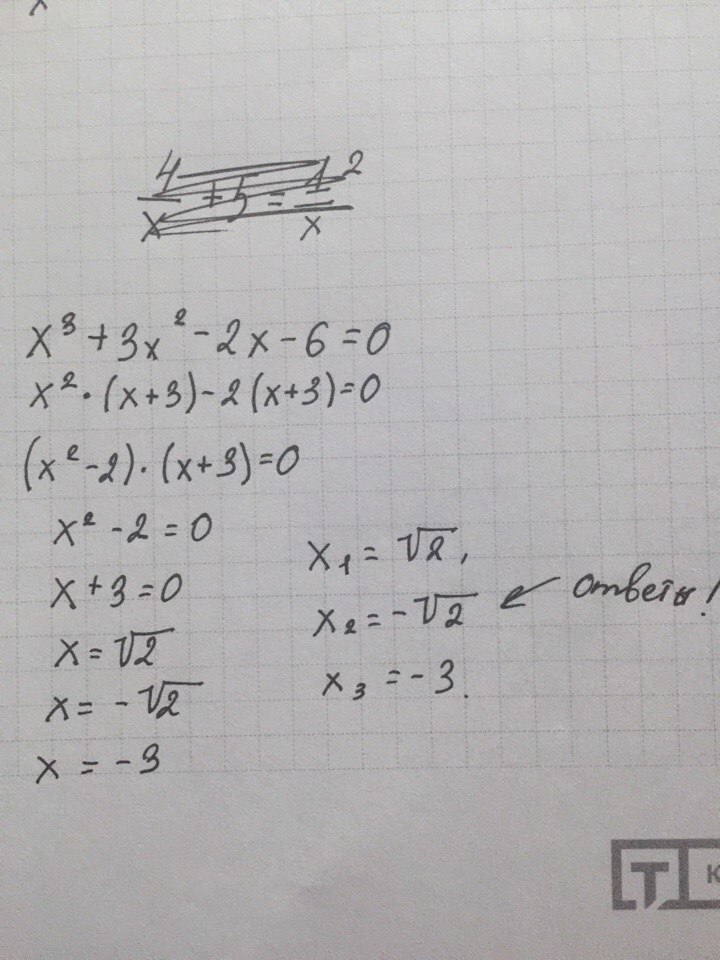 x³ + 3x² - 2x - 6 = 0
x² · (x + 3) - 2(x + 3) = 0
(x² - 2) · (x + 3) = 0
x² - 2 = 0
x + 3 = 0
x = √2
x = - √2
x = - 3
x₁ = √2,
x₂ = - √2 ← ответы!
x₃ = - 3.
Т К